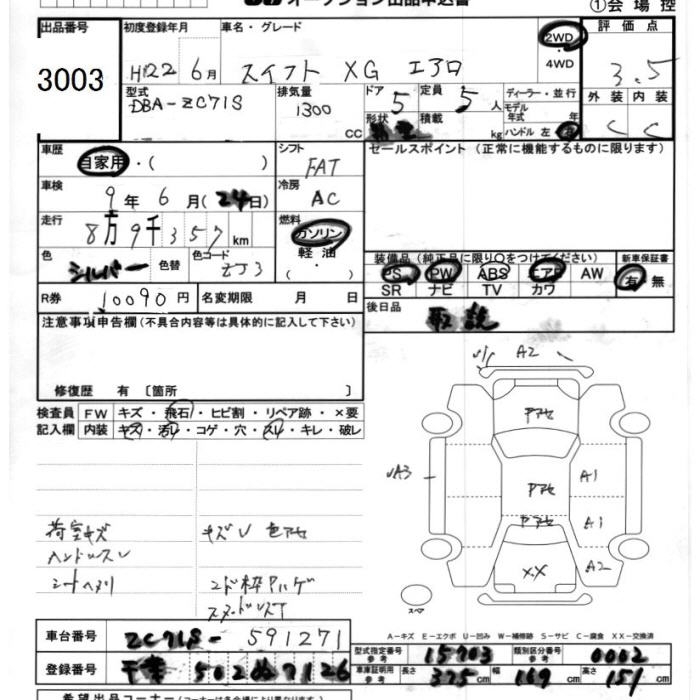 オークション出品申込書
①会場控
出品番号 初度登録年月 車名・グレード 2WD 評価点
3003 H22 6月 スイフト XG エアロ ・ 4WD 3.5
型式 排気量 ドア 定員 ディーラー・並行 外装 内装
DBA-ZC71S 1300 CC 5 5人 モデル年式 年 C C
形状 積載 kg ハンドル 左 右
車歴 シフト セールスポイント (正常に機能するものに限ります)
自家用・( ) FAT
車検 冷房
9年6月(24日) AC
走行 燃料
8万9千357km ガソリン
軽油
( ・ )
色 色替 色コード 装備品(純正品に限り○をつけてください) 新車保証書
シルバー ZJ3 PS PW ABS エアB AW 有・無
SR ナビ TV カワ
R券 10090円 名変期限 月 日 後日品
取説
注意事項申告欄(不具合内容等は具体的に記入して下さい)
修復歴 有 〔箇所 〕
検査員 FW キズ・飛石・ヒビ割・リペア跡・×要
記入欄 内装 キズ・汚レ・コゲ・穴・スレ・キレ・破レ
A2
アセ
A3 アセ A1
アセ A1
XX A2
スペア
荷室キズ キズU 色アセ
ハンドルスレ
シートヘタリ コド枠アルゲ
A-キズ E-エクボ U-凹み W-補修跡 S-サビ C-腐食 XX-交換済
車台番号 ZC71S-591271
型式指定番号 参考 15703 類別区分番号 参考 0002
登録番号 千葉 502 ぬ 7126
車庫証明用 参考 長さ 375cm 幅 169cm 高さ 151cm
希望出品コーナー(コーナーは各会場により異なります)